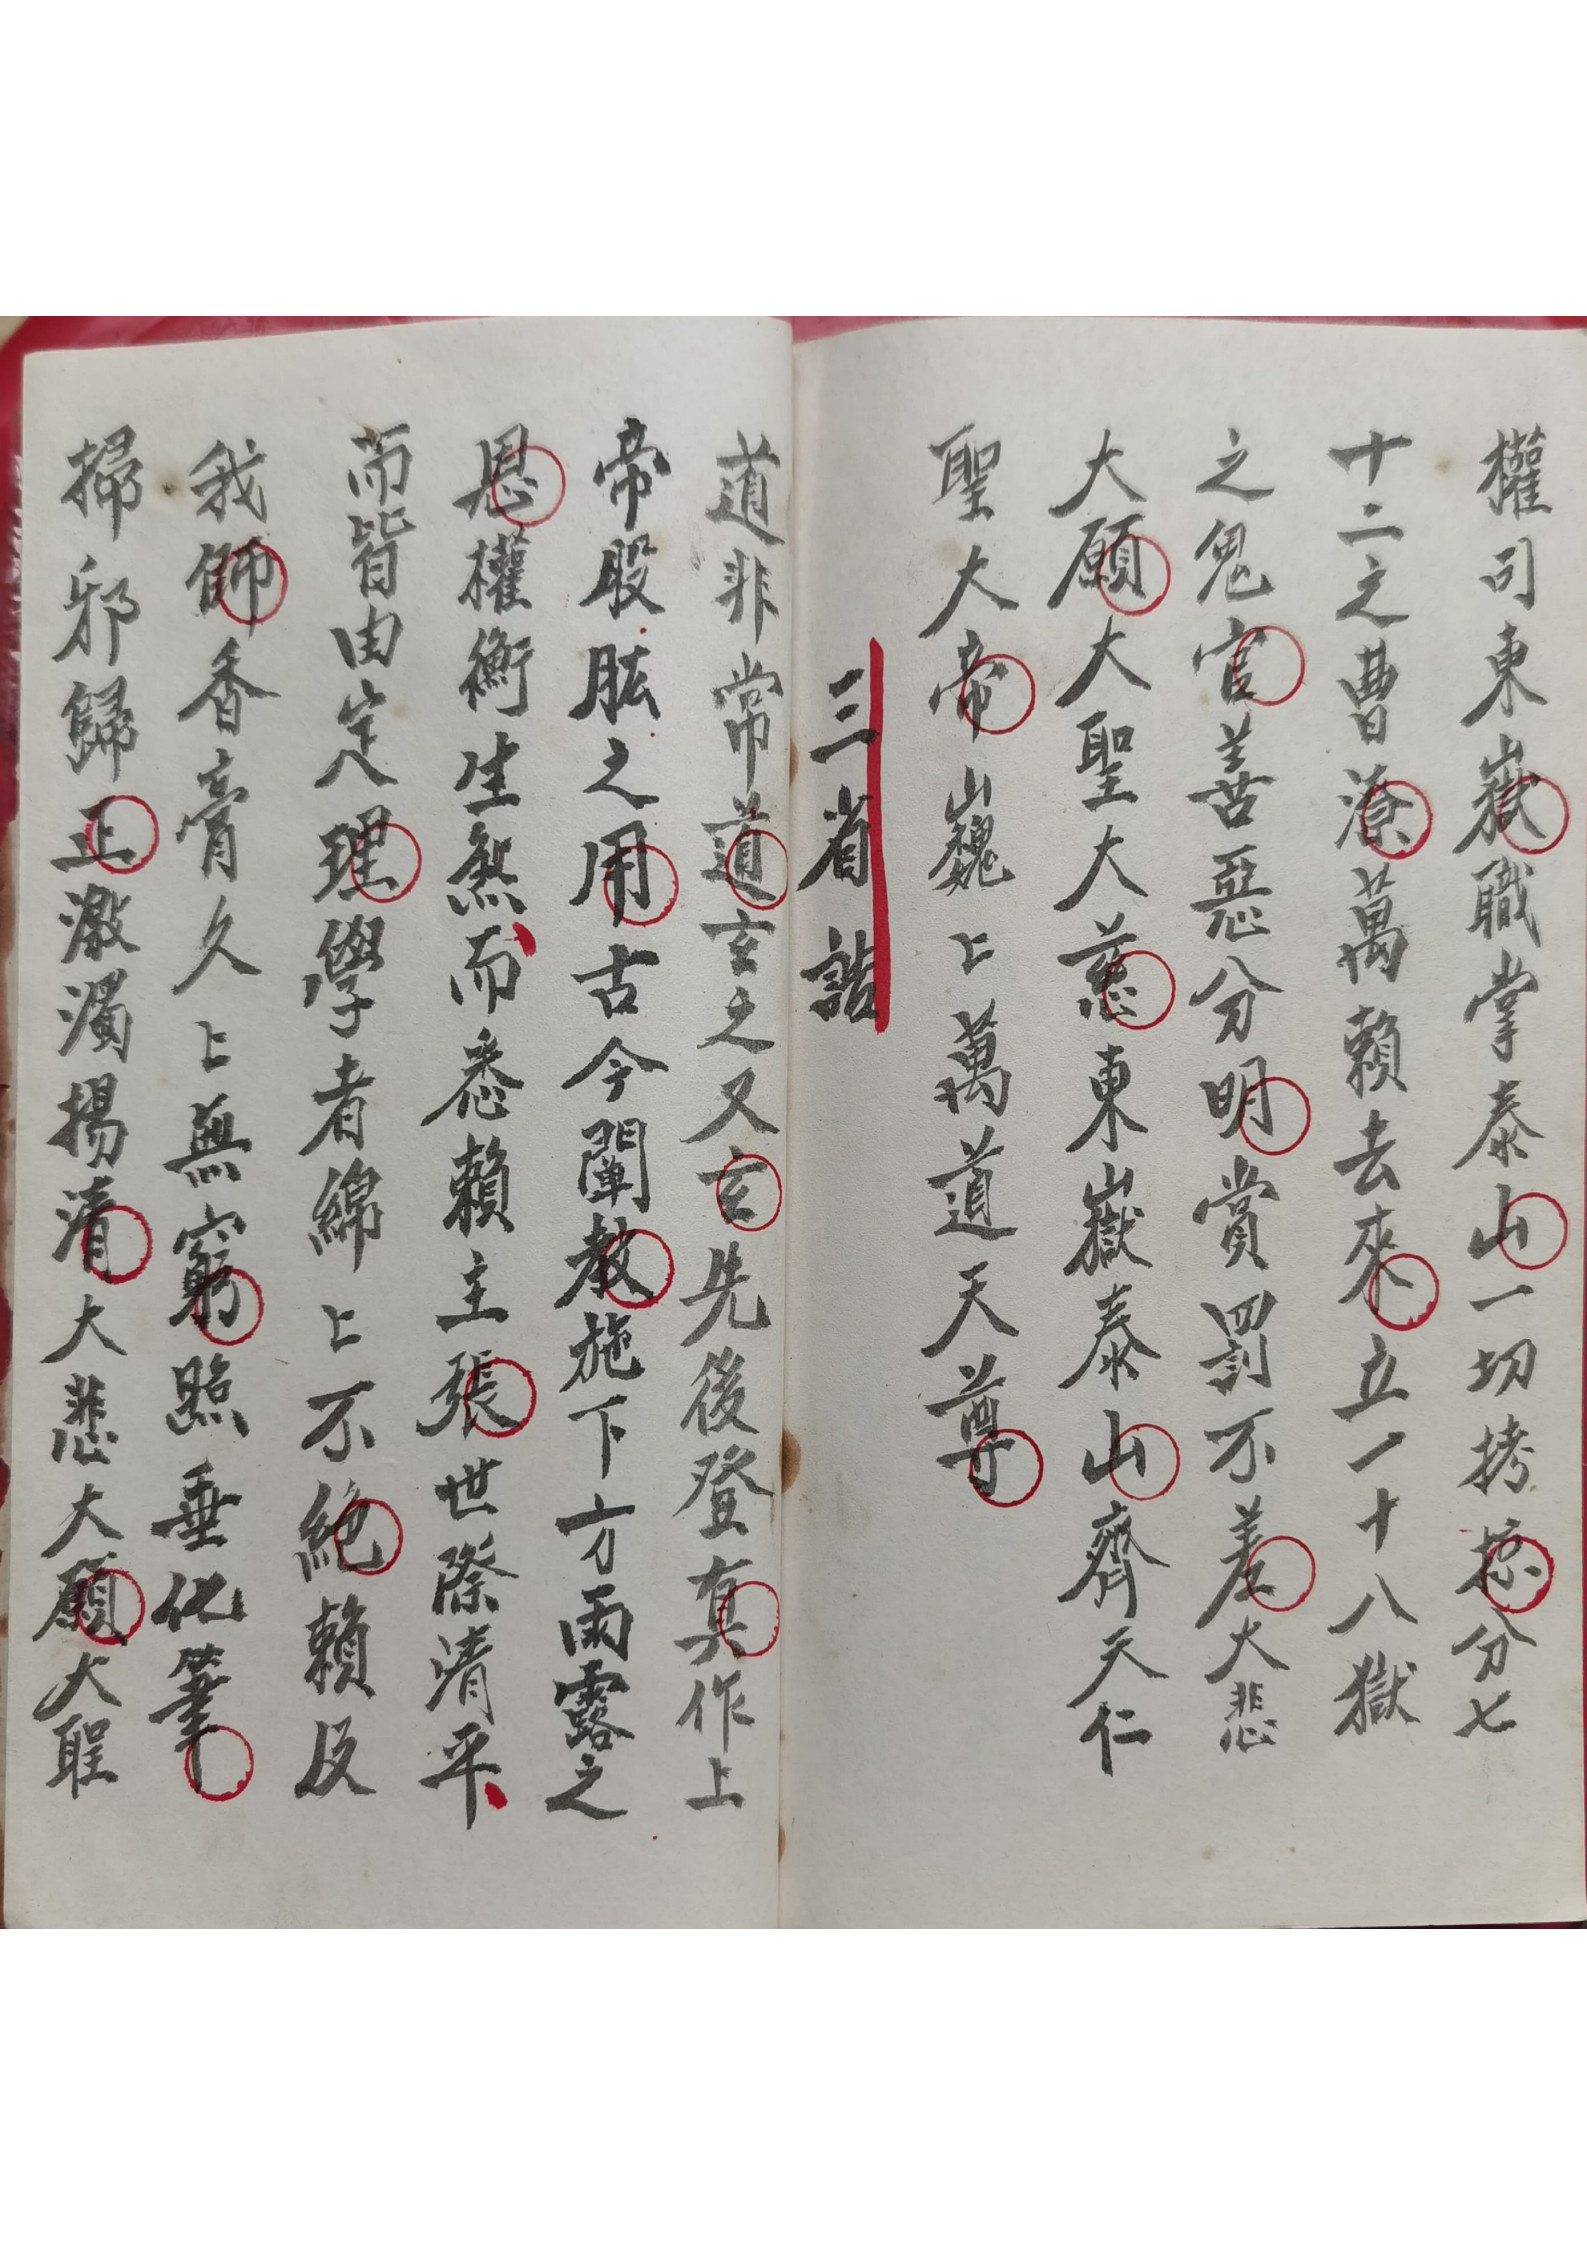 權司東嶽職掌泰山一切拷掠分七
十二之曹潦萬賴去來立一十八獄
之鬼官善惡分明賞罰不差大悲
大願大聖大慈東嶽泰山齊天仁
聖大帝巍上萬道天尊
三省誥
道非常道玄之又玄先後登真作上
帝股肱之用古今闡教施下方雨露之
恩權衡生煞而悉賴主張世際清平
而皆由定理學者綿上不絕賴及
我師香膏久上無窮照垂化筆
掃邪歸正激濁揚清大悲大願大聖